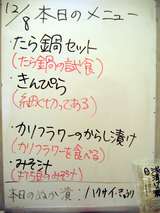 12/8 本日のメニュー
・たら鍋セット
(たら鍋の試食)
・きんぴら
(細く切ってある)
・カリフラワーのからし漬け
(カリフラワーを食べる)
・みそ汁
のみそ汁)
本日のぬか漬: ハクサイ・きゅうり